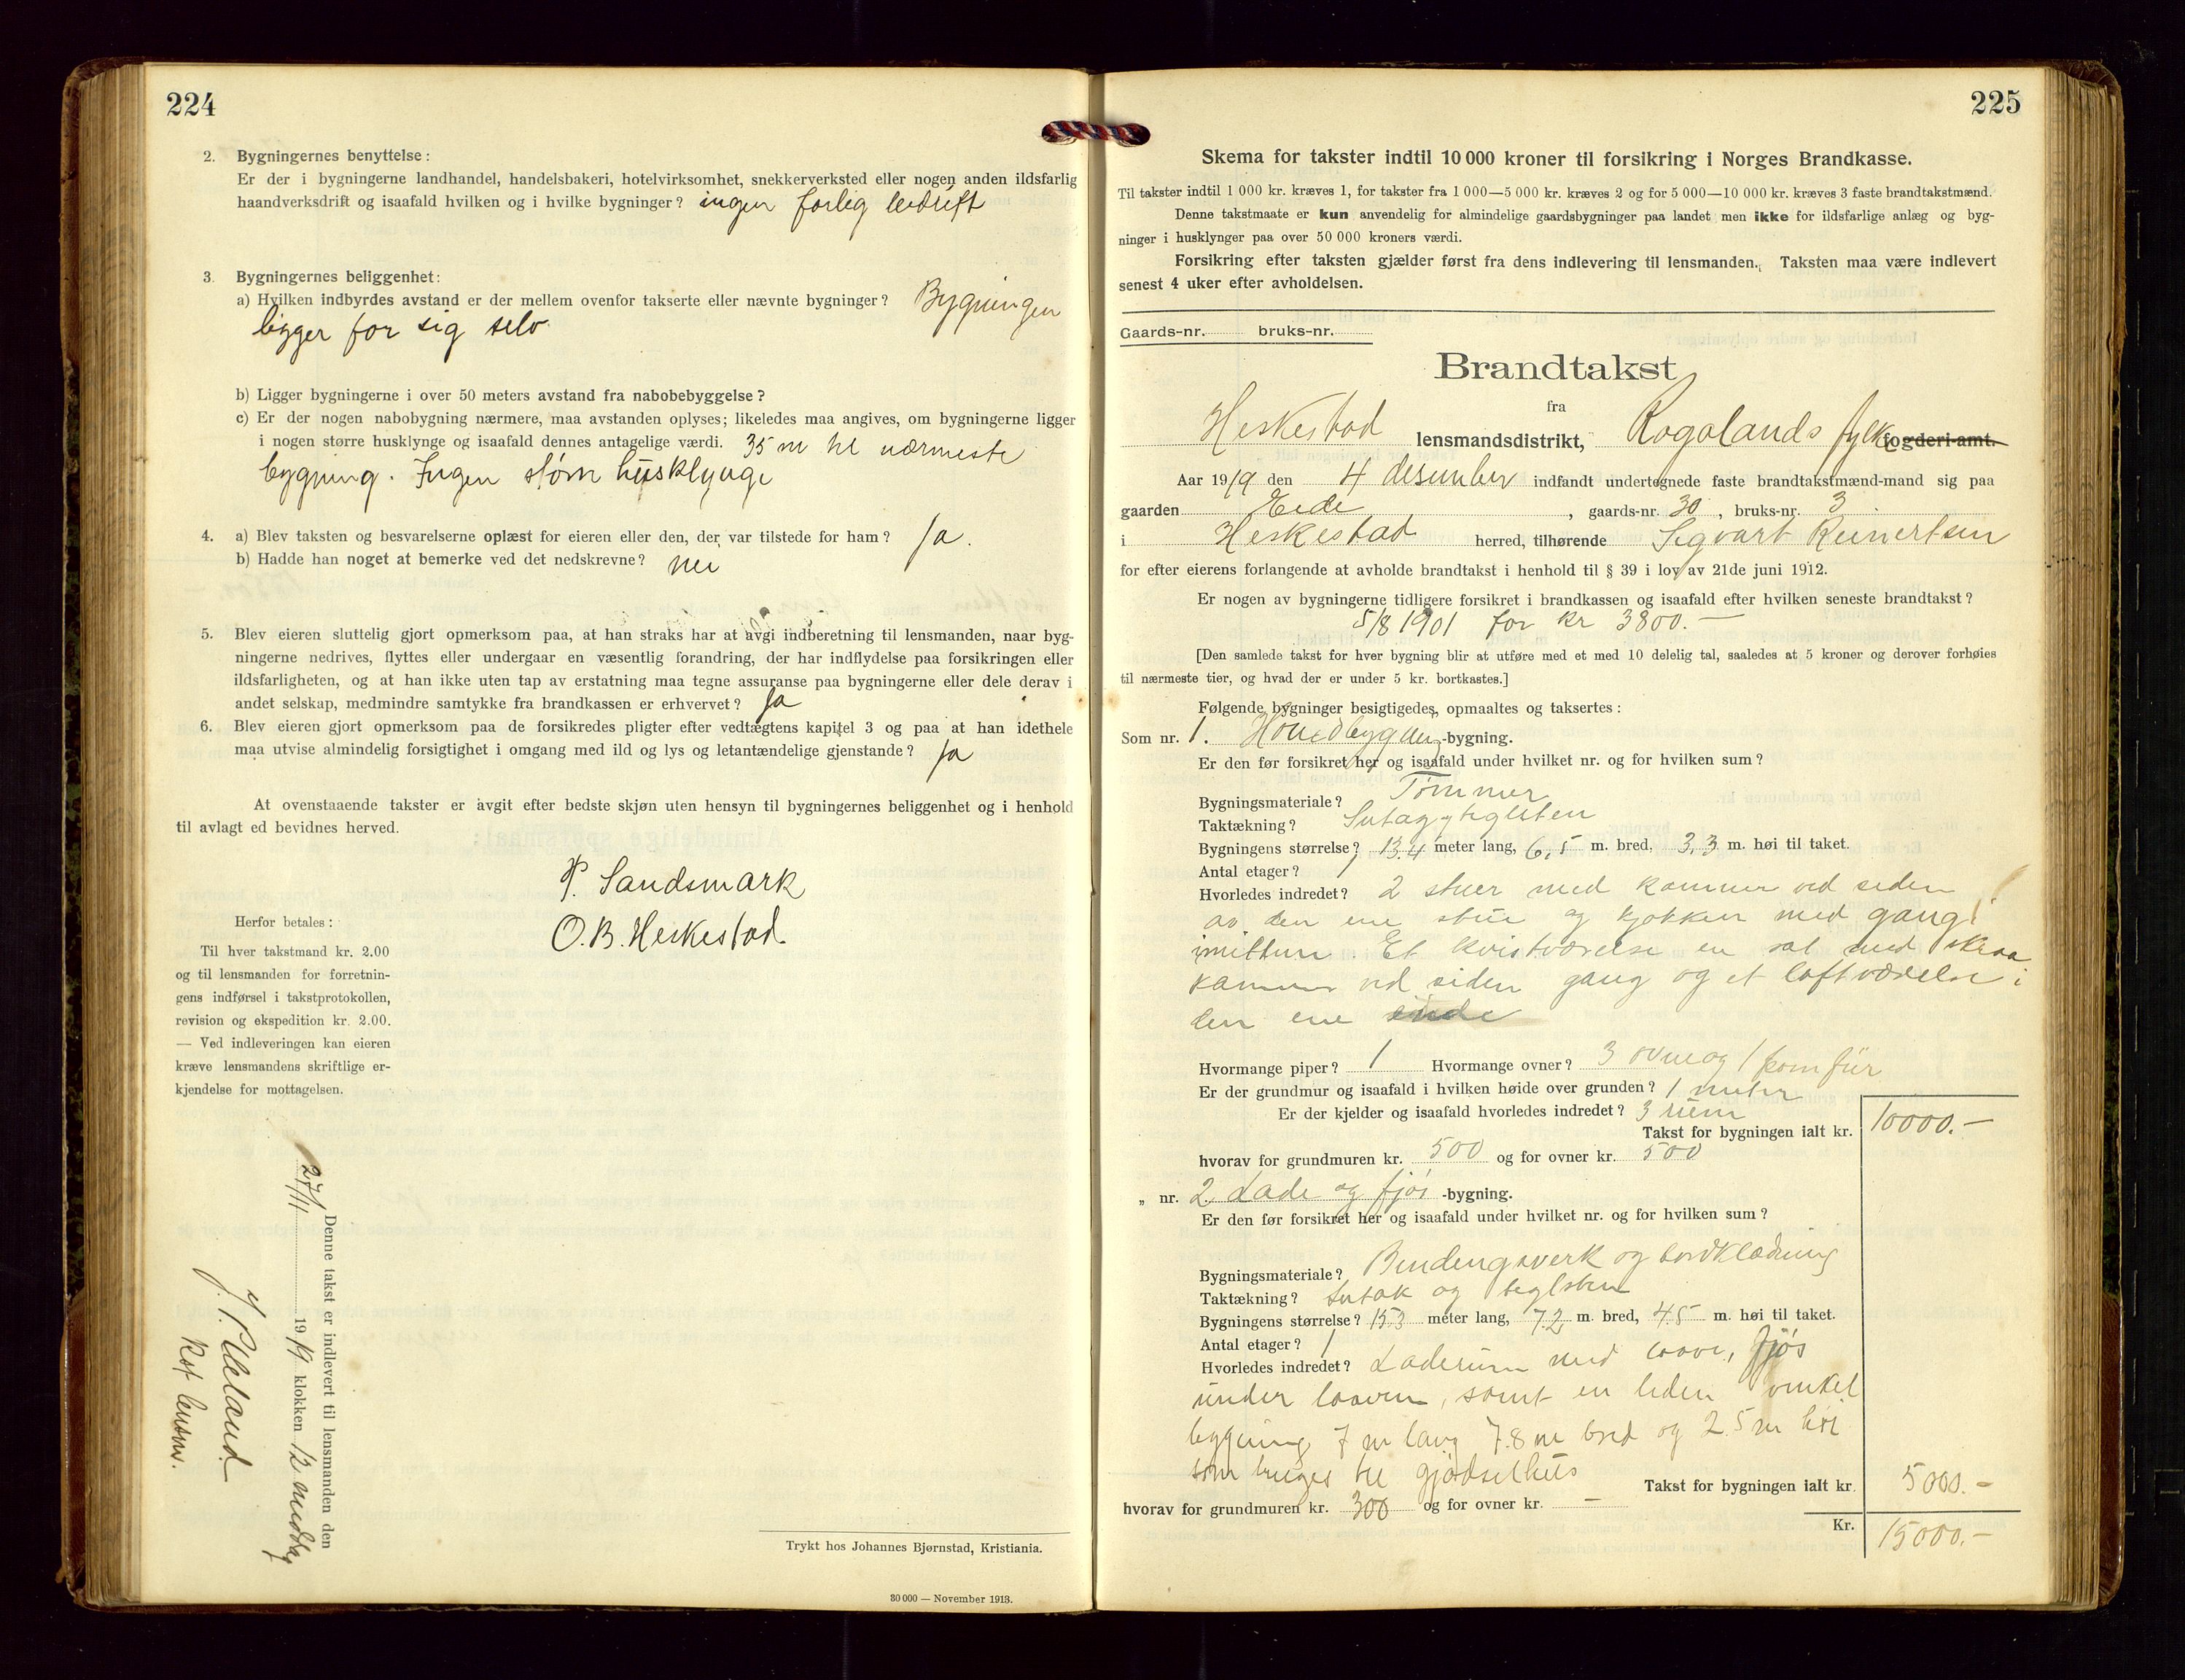 224
2. Bygningernes benyttelse:
Er der i bygningerne landhandel, handelsbakeri, hotelvirksomhet, snekkerverksted eller nogen anden ildsfarlig
haandverksdrift og isaafald hvilken og i hvilke bygninger? ingen farlig bedrift
3. Bygningernes beliggenhet:
a) Hvilken indbyrdes avstand er der mellem ovenfor takserte eller nævnte bygninger? Bygningen
ligger for sig selv
b) Ligger bygningerne i over 50 meters avstand fra nabobebyggelse?
c) Er der nogen nabobygning nærmere, maa avstanden oplyses; likeledes maa angives, om bygningerne ligger
i nogen større husklynge og isaafald dennes antagelige værdi. 35 m til nærmeste
bygning. Ingen større husklynge
4. a) Blev taksten og besvarelserne oplæst for eieren eller den, der var tilstede for ham? Ja.
b) Hadde han noget at bemerke ved det nedskrevne? nei
5. Blev eieren sluttelig gjort opmerksom paa, at han straks har at avgi indberetning til lensmanden, naar byg-
ningerne nedrives, flyttes eller undergaar en væsentlig forandring, der har indflydelse paa forsikringen eller
ildsfarligheten, og at han ikke uten tap av erstatning maa tegne assuranse paa bygningerne eller dele derav i
andet selskap, medmindre samtykke fra brandkassen er erhvervet? Ja
6. Blev eieren gjort opmerksom paa de forsikredes pligter efter vedtægtens kapitel 3 og paa at han idethele
maa utvise almindelig forsigtighet i omgang med ild og lys og letantændelige gjenstande? Ja
At ovenstaaende takster er avgit efter bedste skjøn uten hensyn til bygningernes beliggenhet og i henhold
til avlagt ed bevidnes herved.
P. Sandsmark
O. B. Heskestad.
Herfor betales:
Til hver takstmand kr. 2.00
og til lensmanden for forretnin-
gens indførsel i takstprotokollen,
revision og ekspedition kr. 2.00.
— Ved indleveringen kan eieren
kræve lensmandens skriftlige er-
kjendelse for mottagelsen.
Denne takst er indlevert til lensmanden den
27/11 1919 klokken 12 middag
J. Ueland
Kst lensm.
Trykt hos Johannes Bjørnstad, Kristiania.
30 000 — November 1913.
225
Skema for takster indtil 10 000 kroner til forsikring i Norges Brandkasse.
Til takster indtil 1 000 kr. kræves 1, for takster fra 1 000—5 000 kr. kræves 2 og for 5 000—10 000 kr. kræves 3 faste brandtakstmænd.
Denne takstmaate er kun anvendelig for almindelige gaardsbygninger paa landet men ikke for ildsfarlige anlæg og byg-
ninger i husklynger paa over 50 000 kroners værdi.
Forsikring efter taksten gjælder først fra dens indlevering til lensmanden. Taksten maa være indlevert
senest 4 uker efter avholdelsen.
Gaards-nr. bruks-nr.
Brandtakst
fra
Heskestad lensmandsdistrikt, Rogalands fylke fogderi-amt.
Aar 1919 den 4 desember indfandt undertegnede faste brandtakstmænd-mand sig paa
gaarden Eide, gaards-nr. 30, bruks-nr. 3
i Heskestad herred, tilhørende Sigvart Reinertsen
for efter eierens forlangende at avholde brandtakst i henhold til § 39 i lov av 21de juni 1912.
Er nogen av bygningerne tidligere forsikret i brandkassen og isaafald efter hvilken seneste brandtakst?
5/8 1901 for kr 3800.—
[Den samlede takst for hver bygning blir at utføre med et med 10 delelig tal, saaledes at 5 kroner og derover forhøies
til nærmeste tier, og hvad der er under 5 kr. bortkastes.]
Følgende bygninger besigtigedes, opmaaltes og taksertes:
Som nr. 1. -bygning.
Er den før forsikret her og isaafald under hvilket nr. og for hvilken sum?
Bygningsmateriale? Tømmer
Taktækning? Sutag tiglsten
Bygningens størrelse? 13.4 meter lang, 6,5 m. bred, 3,3 m. høi til taket.
Antal etager? 1
Hvorledes indredet? 2 stuer med kammer ved siden
av den ene stue og kjøkken med gang i
mitten. Et kvistværelse en sal med skraa
kammer ved siden gang og et loftværelse i
den ene ende
Hvormange piper? 1 Hvormange ovner? 3 ovne og 1 komfür
Er der grundmur og isaafald i hvilken høide over grunden? 1 meter
Er der kjelder og isaafald hvorledes indredet? 3 rum
Takst for bygningen ialt kr. 10000.—
hvorav for grundmuren kr. 500 og for ovner kr. 500
„ nr. 2. Lade og fjøs -bygning.
Er den før forsikret her og isaafald under hvilket nr. og for hvilken sum?
Bygningsmateriale? Bindingsverk og bordklædning
Taktækning? Sutak og teglsten
Bygningens størrelse? 15.3 meter lang, 7.2 m. bred, 4.5 m. høi til taket.
Antal etager? 1
Hvorledes indredet? Laderum med laave, fjøs
under laaven, samt en liden vinkel
bygning 7 m lang 7.8 m bred og 2.5 m høi
som bruges til gjødselhus
Takst for bygningen ialt kr. 5000.—
hvorav for grundmuren kr. 300 og for ovner kr. —
Kr. 15000.—